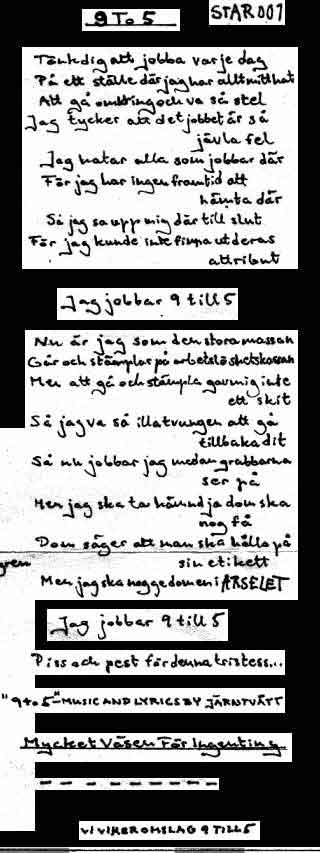 9 To 5
STAR001
Tänk dig att jobba varje dag
På ett ställe där jag har allt mitt hat
Att gå omkring och va så stel
Jag tycker att det jobbet är så
jävla fel
Jag hatar alla som jobbar där
För jag har ingen framtid att
hämta där
Så jag sa upp mig där till slut
För jag kunde inte finna ut deras
attribut
Jag jobbar 9 till 5
Nu är jag som den stora massan
Går och stämplar på arbetslöshetskassan
Men att gå och stämpla gav mig inte
ett skit
Så jag va så illa tvungen att gå
tillbaka dit
Så nu jobbar jag medan grabbarna
ser på
Men jag ska ta hämnd ja dom ska
nog få
Dom säger att man ska hålla på
sin etikett
gren
Men jag ska nog ge dom en i ARSELET
Jag jobbar 9 till 5
Piss och pest för denna tristess...
"9 to 5" - MUSIC AND LYRICS BY JÄRNTVÄTT
Mycket Väsen För Ingenting
V/VIKER OMSLAG 9 TILL 5